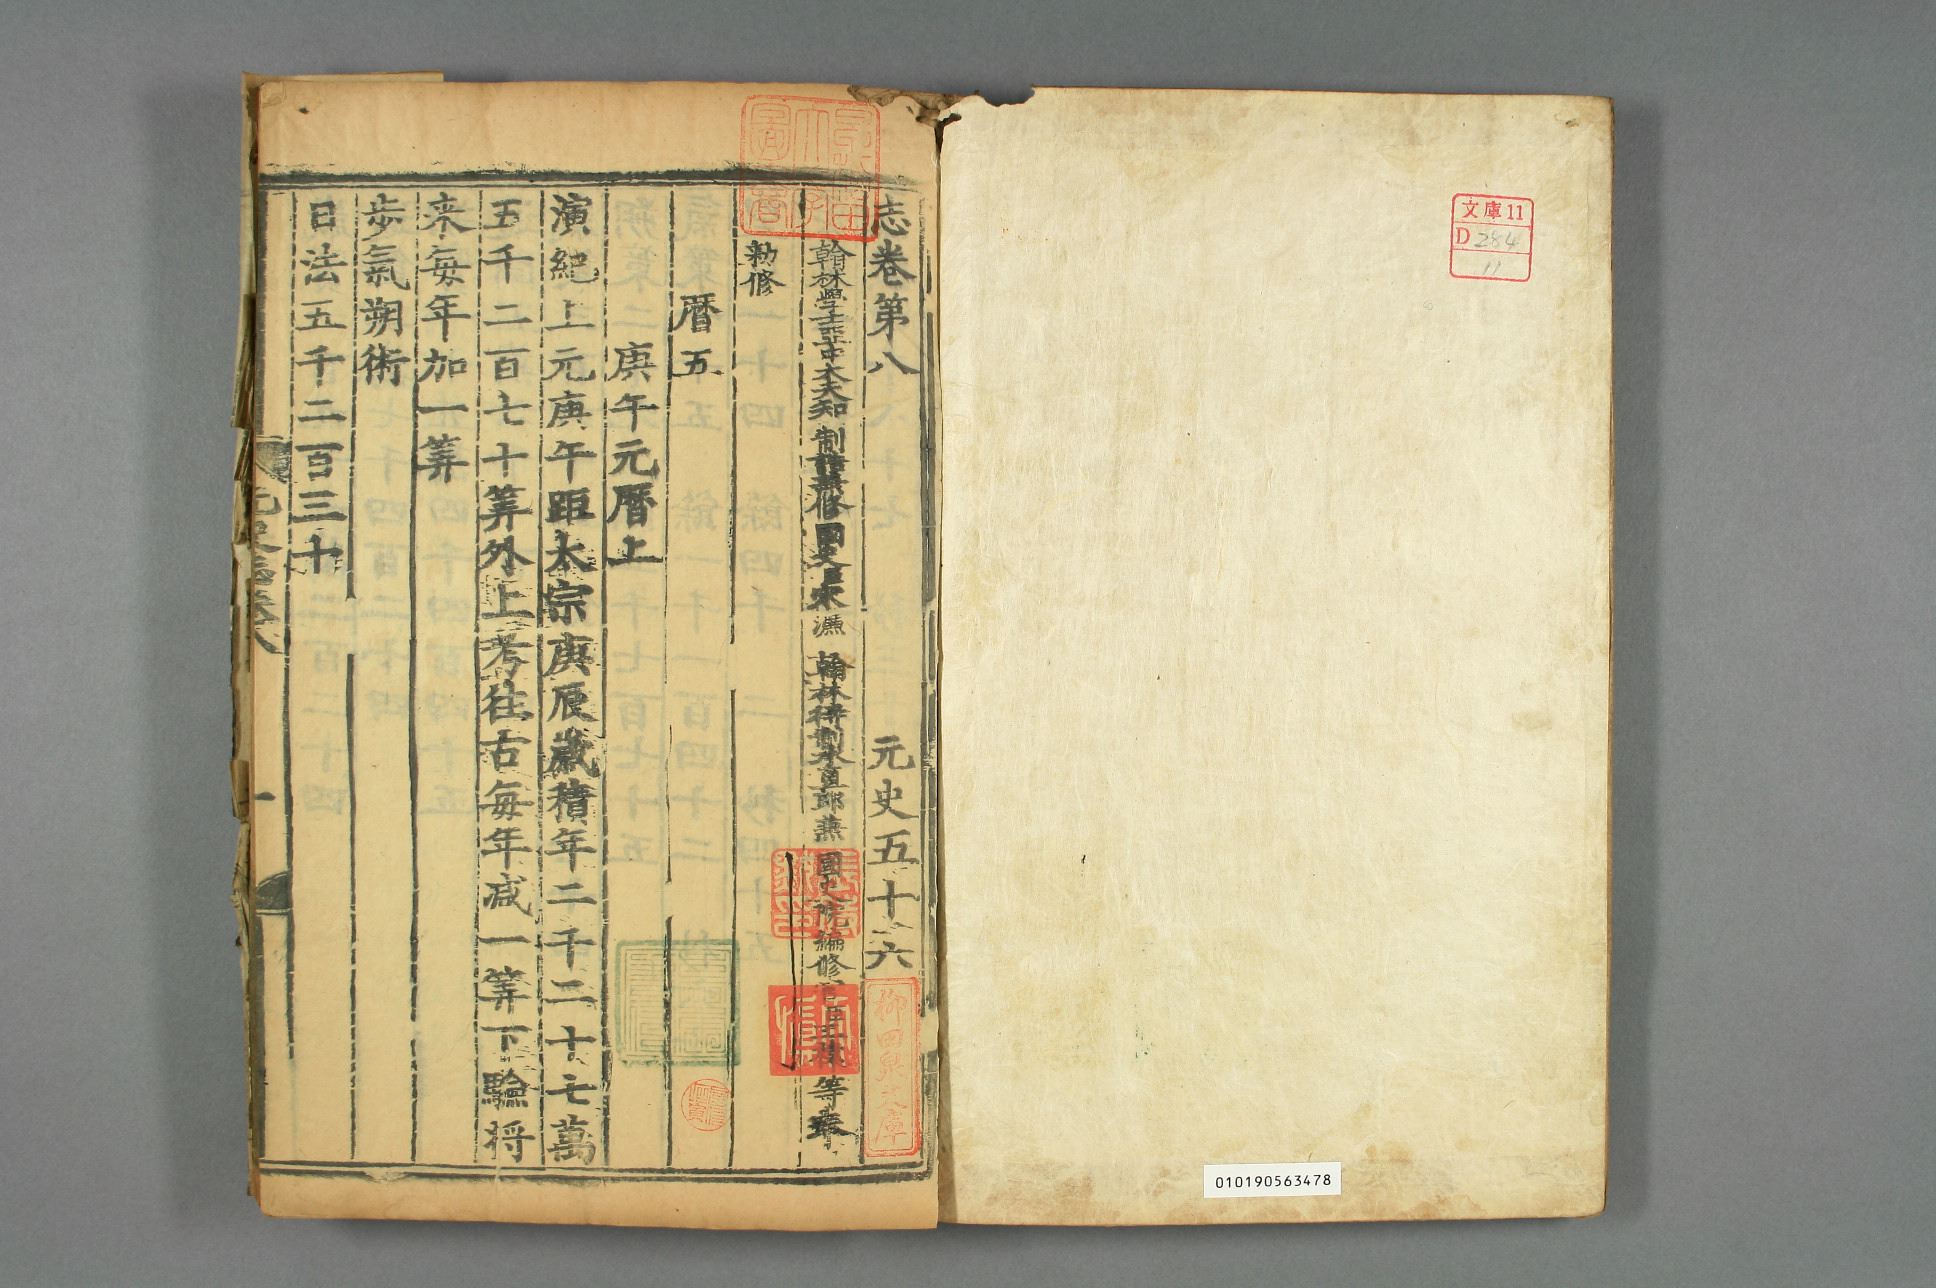 文庫11
D 284
11
010190563478
志卷第八 元史五十六
翰林學士亞中大夫知制誥兼修國史臣宋濂 翰林待制承直郎兼國史院編修官臣王禕等奉
勑修
曆五
庚午元曆上
演紀上元庚午距太宗庚辰歲積年二千二十七萬
五千二百七十筭外上考往古每年减一筭下驗将
来每年加一筭
步氣朔術
日法五千二百三十
元史志卷八 一
柳田泉文庫